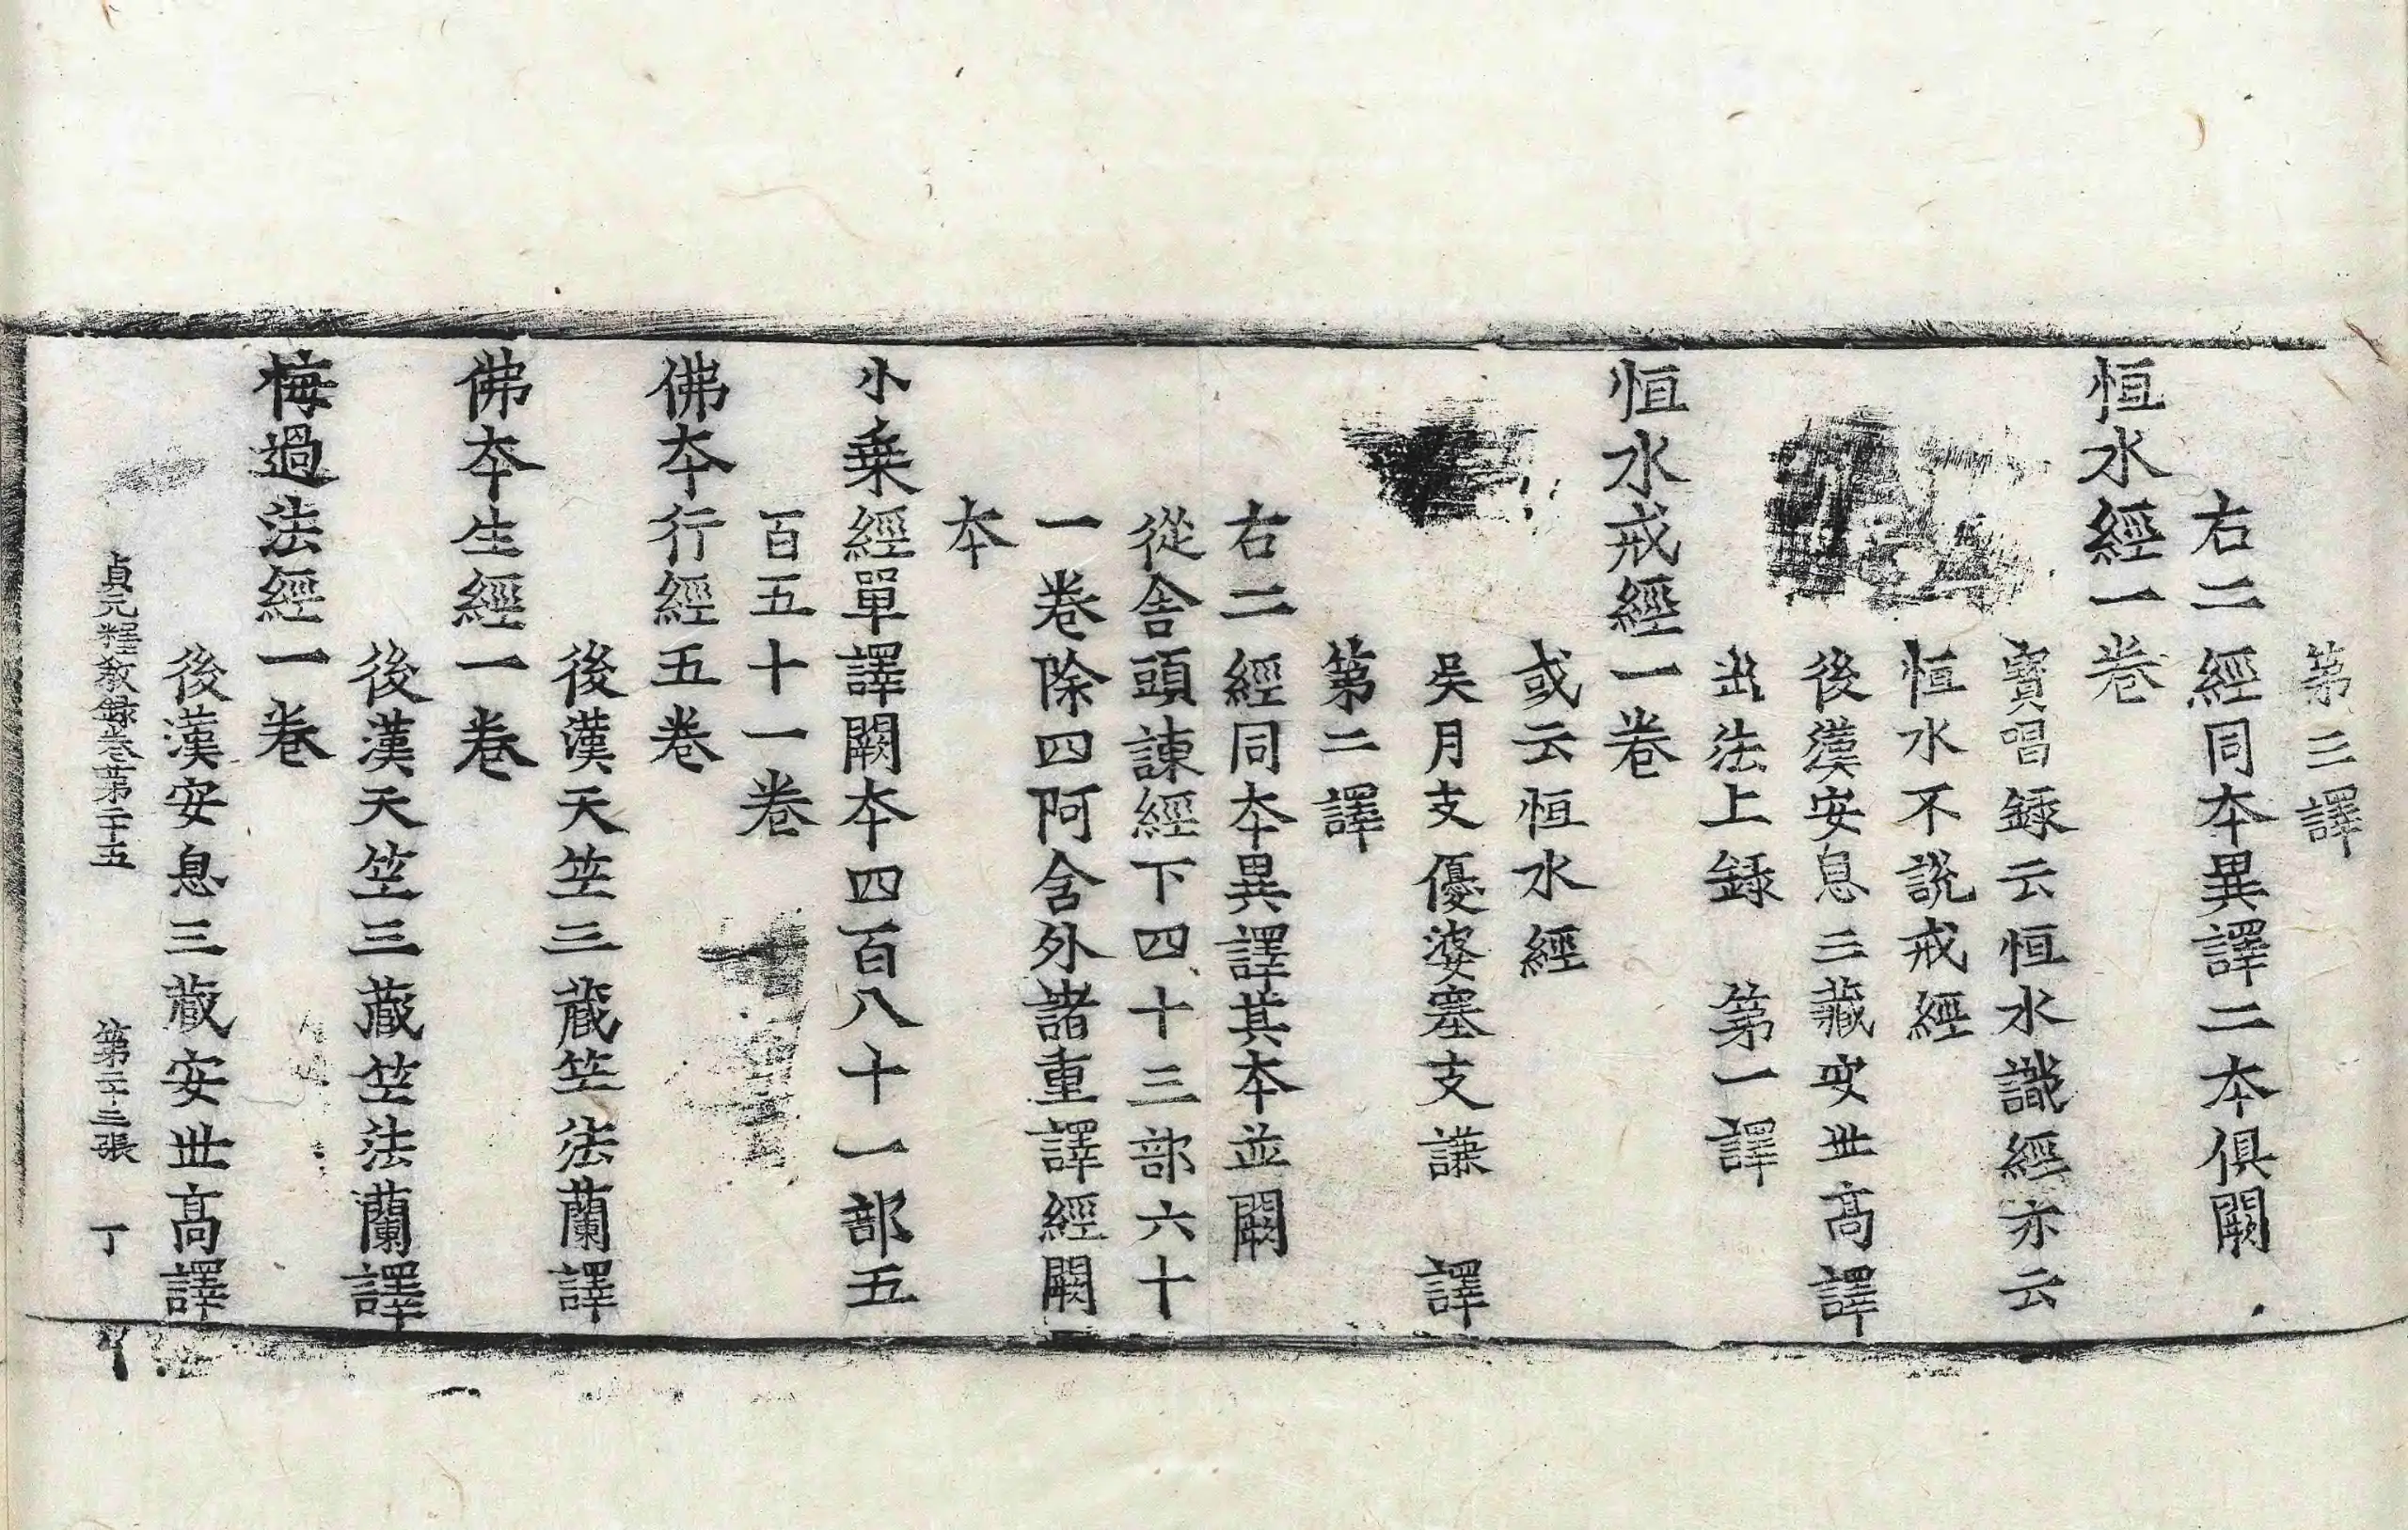 第三譯
右二經同本異譯二本俱闕
恒水經一卷
寶唱録云恒水識經亦云
恒水不説戒經
後漢安息三藏安世高譯
出法上録　第一譯
恒水戒經一卷
或云恒水經
吳月支優婆塞支謙　譯
第二譯
右二經同本異譯其本並闕
從舍頭諫經下四十三部六十
一卷除四阿含外諸重譯經闕
本
小乗經單譯闕本四百八十一部五
百五十一卷
佛本行經五卷
後漢天竺三藏竺法蘭譯
佛本生經一卷
後漢天竺三藏竺法蘭譯
悔過法經一卷
後漢安息三藏安世高譯
貞元釋教録卷第二十五　第二十三張　丁